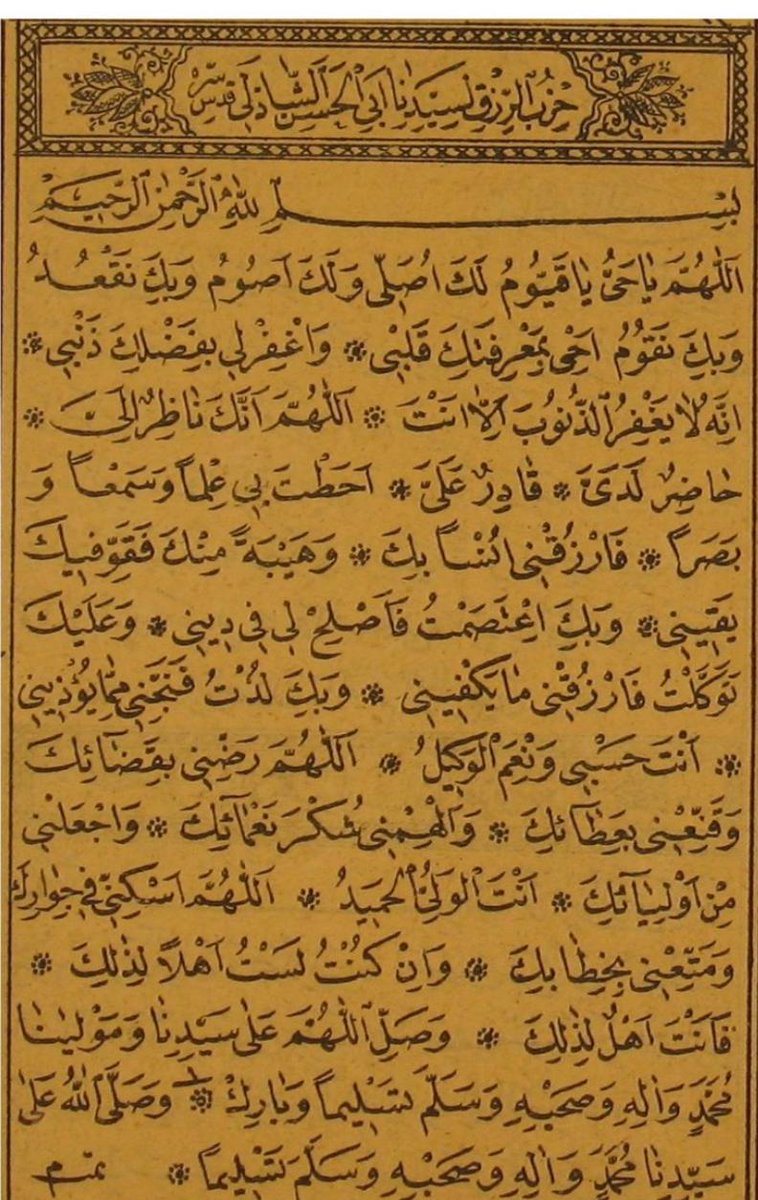 حِزْبُ الرِّزْقِ لِسَيِّدِنَا أَبِي الْحَسَنِ الشَّاذِلِي قُدِّسَ سِرُّهُ
بِسْمِ اللّٰهِ الرَّحْمٰنِ الرَّحِيمِ
اَللّٰهُمَّ يَا حَيُّ يَا قَيُّومُ لَكَ اُصَلِّى وَلَكَ اَصُومُ وَبِكَ نَقْعُدُ
وَبِكَ نَقُومُ اَحْيِ بِمَعْرِفَتِكَ قَلْبِى ۞ وَاغْفِرْلِي بِفَضْلِكَ ذَنْبِى ۞
اِنَّهُ لَا يَغْفِرُ الذُّنُوبَ اِلَّا اَنْتَ ۞ اَللّٰهُمَّ اَنَّكَ نَاظِرٌ اِلَىَّ ۞
حَاضِرٌ لَدَىَّ ۞ قَادِرٌ عَلَىَّ ۞ اَحَطْتَ بِي عِلْماً وَسَمْعاً وَ
بَصَراً ۞ فَارْزُقْنِى اُنْساً بِكَ ۞ وَهَيْبَةً مِنْكَ فَقَوِّ فِيكَ
يَقِينِى ۞ وَبِكَ اعْتَصَمْتُ فَاَصْلِحْ لِي فِي دِينِى ۞ وَعَلَيْكَ
تَوَكَّلْتُ فَارْزُقْنِى مَا يَكْفِينِى ۞ وَبِكَ لُذْتُ فَنَجِّنِى مِمَّا يُؤْذِينِى
۞ اَنْتَ حَسْبِى وَنِعْمَ الْوَكِيلُ ۞ اَللّٰهُمَّ رَضِّنِى بِقَضَائِكَ
وَقَنِّعْنِى بِعَطَائِكَ ۞ وَاَلْهِمْنِى شُكْرَ نَعْمَائِكَ ۞ وَاجْعَلْنِى
مِنْ اَوْلِيَائِكَ ۞ اَنْتَ الْوَلِيُّ الْحَمِيدُ ۞ اَللّٰهُمَّ اَسْكِنِّى فِي جِوَارِكَ
وَمَتِّعْنِى بِخِطَابِكَ ۞ وَاِنْ كُنْتُ لَسْتُ اَهْلاً لِذٰلِكَ ۞
فَاَنْتَ اَهْلٌ لِذٰلِكَ ۞ وَصَلِّ اللّٰهُمَّ عَلَى سَيِّدِنَا وَمَوْلٰينَا
مُحَمَّدٍ وَاٰلِهِ وَصَحْبِهِ وَسَلِّمْ تَسْلِيماً وَبَارِكْ ۞ وَصَلَّى اللّٰهُ عَلَى
سَيِّدِنَا مُحَمَّدٍ وَاٰلِهِ وَصَحْبِهِ وَسَلَّمَ تَسْلِيماً ۞ تمم